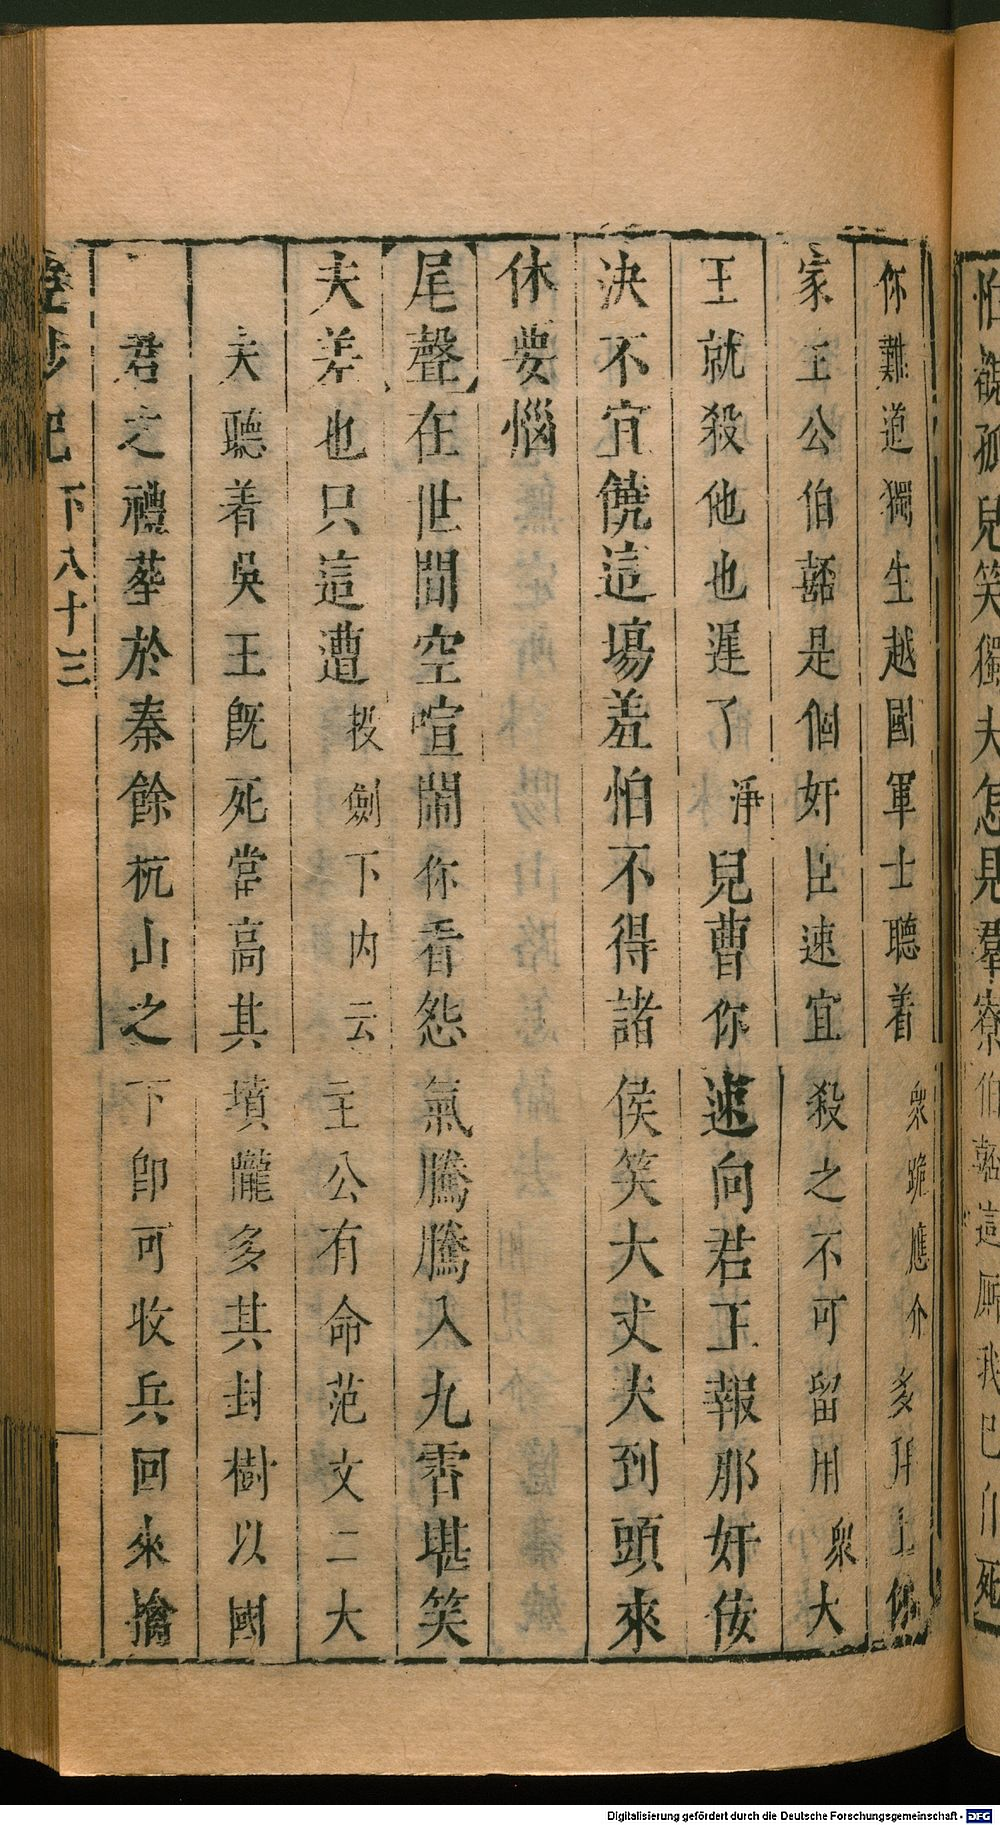 怕覩孤兒笑獨夫怎見羣寮伯嚭這厮我已自死
你難道獨生越國軍士聽着衆跪應介多拜上你
家主公伯嚭是個奸臣速宜殺之不可留用衆大
王就殺他也遲了淨兒曹你速向君王報那奸佞
決不宜饒這場羞怕不得諸侯笑大丈夫到頭來
休要惱
尾聲在世間空喧鬧你看怨氣騰騰入九霄堪笑
夫差也只這遭投劍下內云主公有命范文二大
夫聽着吳王旣死當高其墳隴多其封樹以國
君之禮葬於秦餘杭山之下卽可收兵回來擒
紗記
下八十三
Digitalisierung gefördert durch die Deutsche Forschungsgemeinschaft - DFG